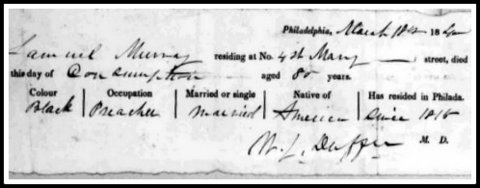 Philadelphia, March 18th 184
Samuel Murray residing at No. 4 St Mary street, died
this day of Consumption aged 80 years.
Colour Occupation Married or single Native of Has resided in Philada.
Black Preacher Married America Since 1818
W. L. M. D.